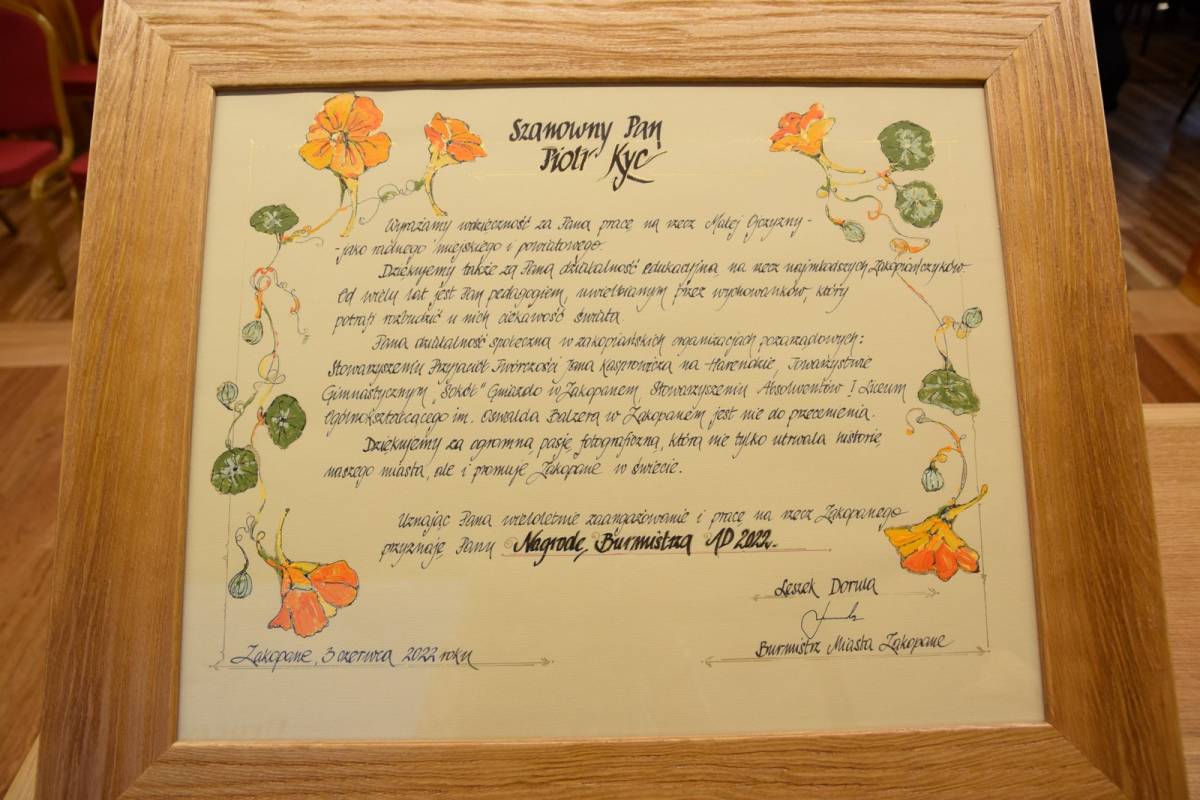 Szanowny Pan
Piotr Kyc
Wyrażamy wdzięczność za Pana pracę na rzecz Małej Ojczyzny -
- jako radnego miejskiego i powiatowego.
Dziękujemy także za Pana działalność edukacyjną na rzecz najmłodszych Zakopiańczyków.
Od wielu lat jest Pan pedagogiem, uwielbianym przez wychowanków, który
potrafi rozbudzić w nich ciekawość świata.
Pana działalność społeczna w zakopiańskich organizacjach pozarządowych:
Stowarzyszeniu Przyjaciół Twórczości Jana Kasprowicza na Harendzie, Towarzystwie
Gimnastycznym „Sokół" Gniazdo w Zakopanem, Stowarzyszeniu Absolwentów I Liceum
Ogólnokształcącego im. Oswalda Balzera w Zakopanem jest nie do przecenienia.
Dziękujemy za ogromną pasję fotograficzną, która nie tylko utrwala historię
naszego miasta, ale i promuje Zakopane w świecie.
Uznając Pana wieloletnie zaangażowanie i pracę na rzecz Zakopanego
przyznaję Panu Nagrodę Burmistrza AD 2022.
Leszek Dorula
Burmistrz Miasta Zakopane
Zakopane, 3 czerwca 2022 roku